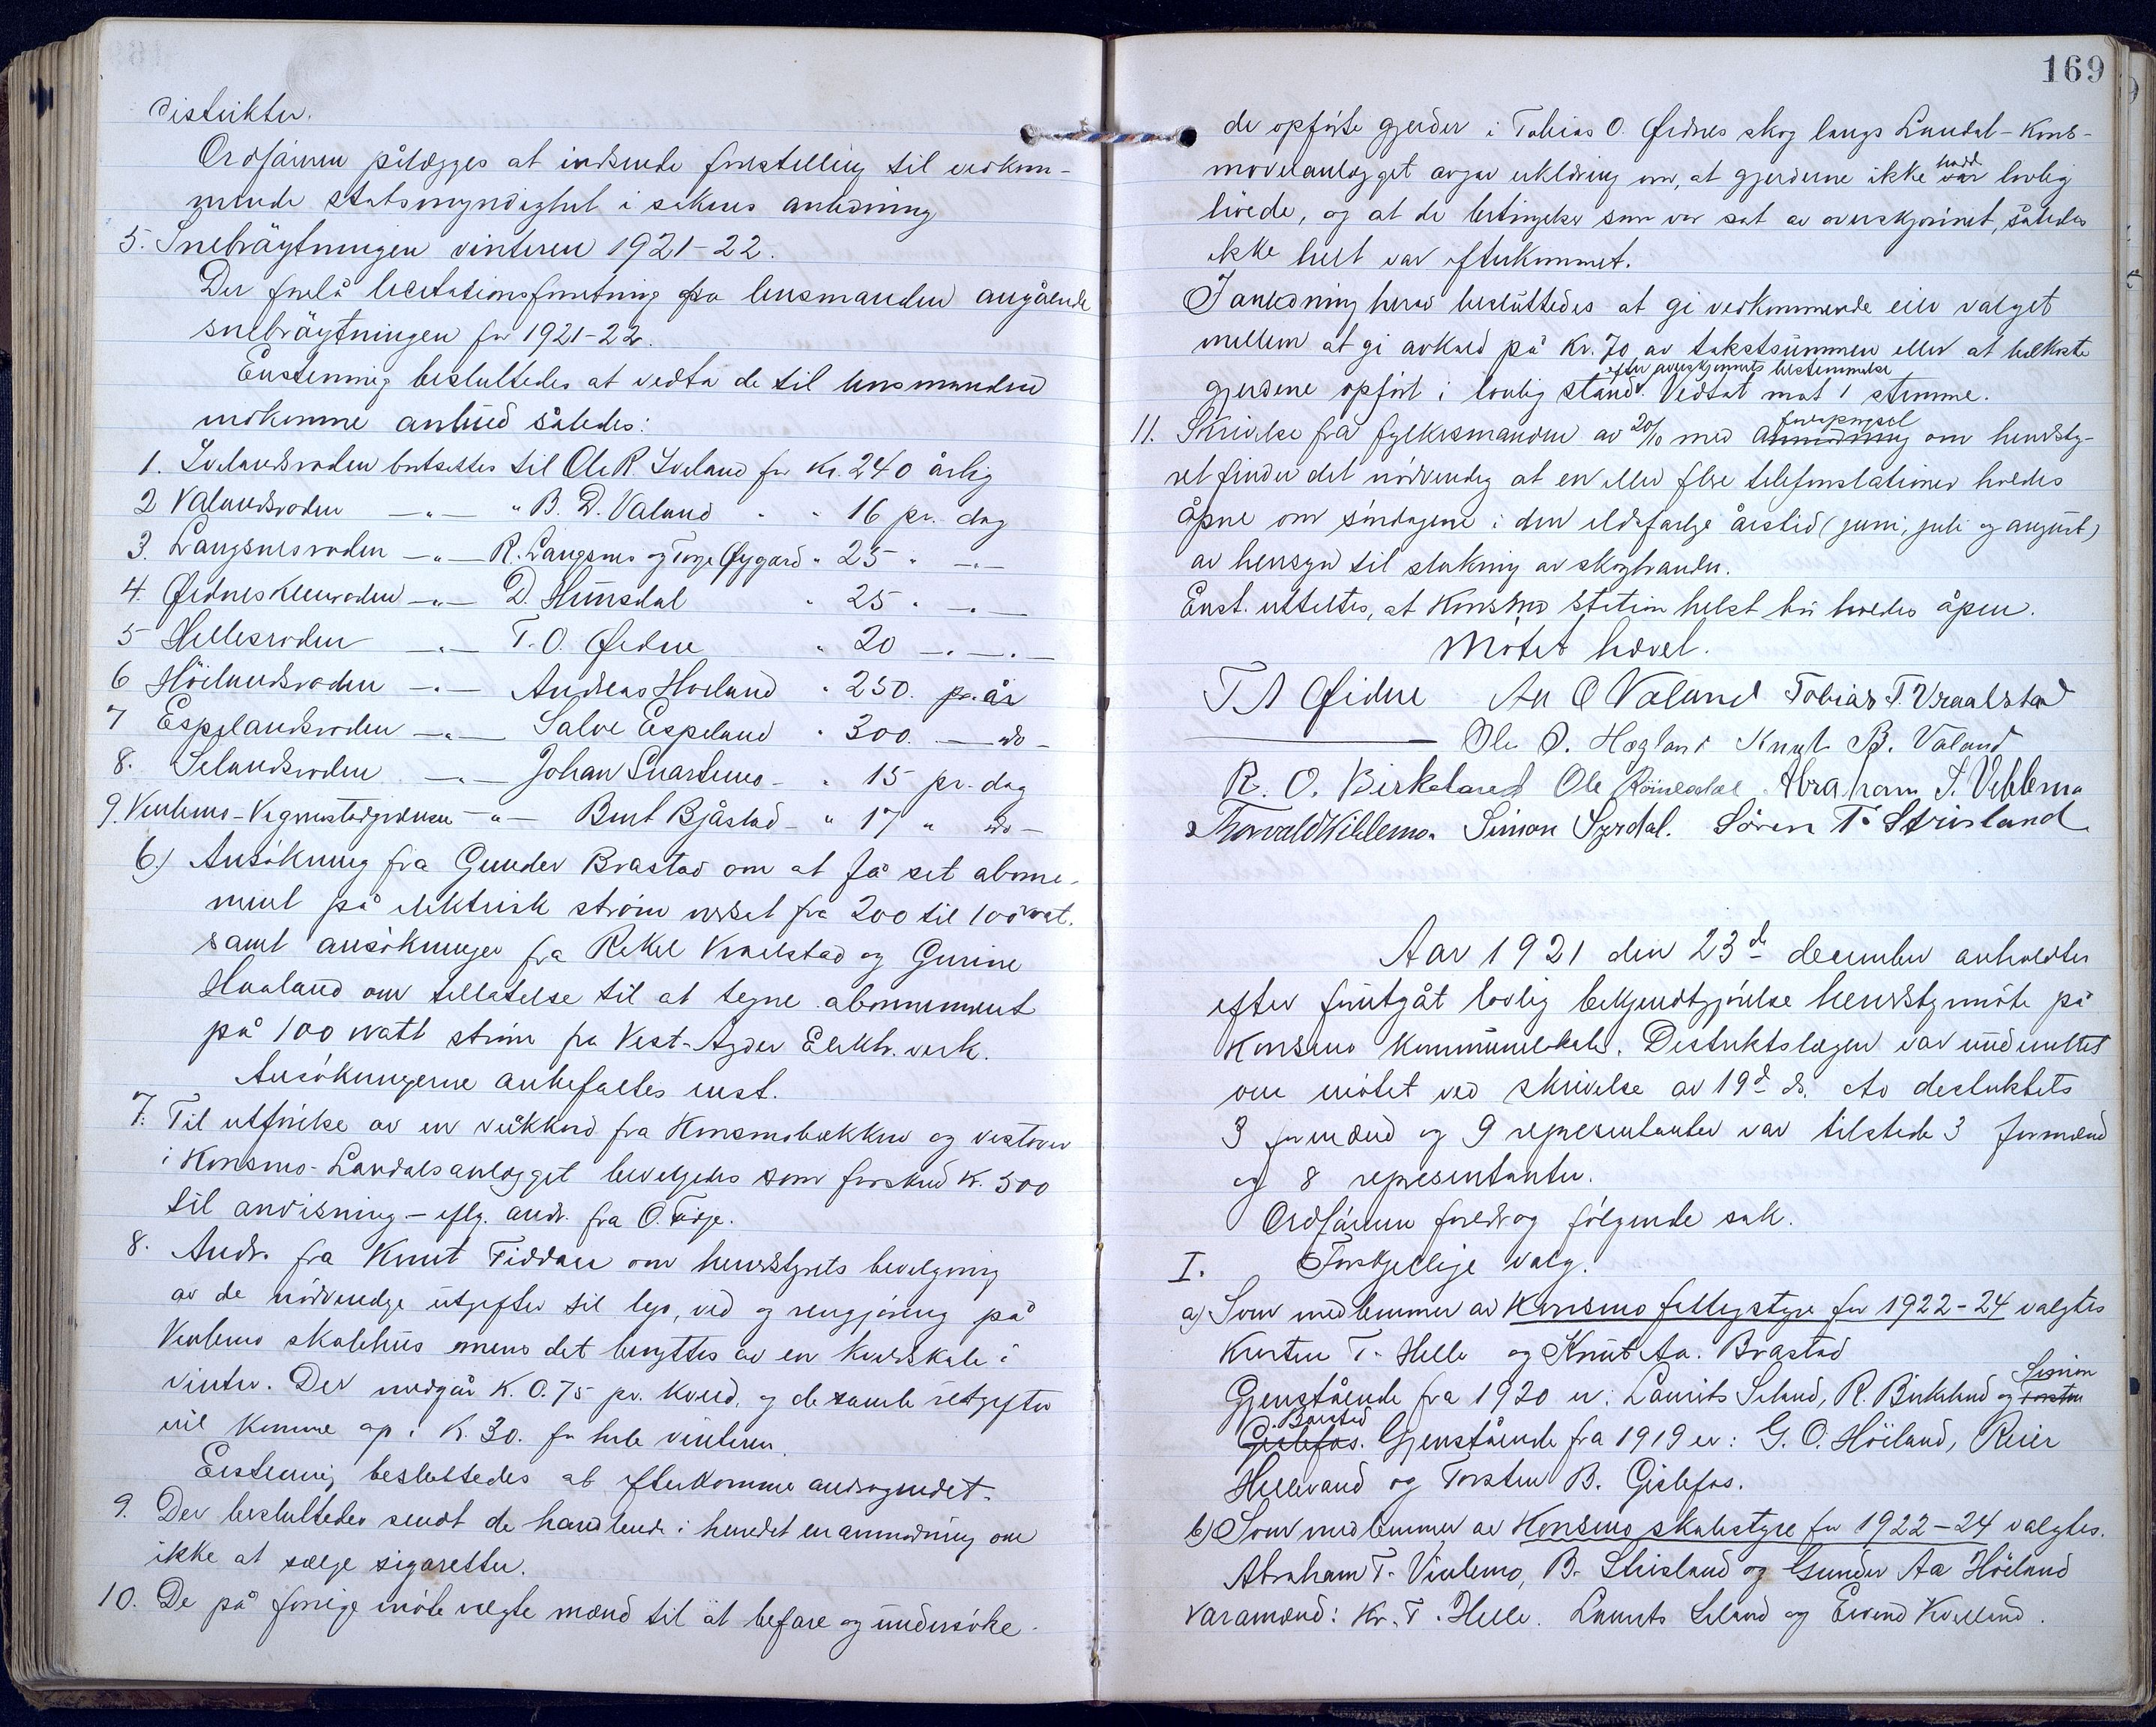 distrikter.
Ordføreren pålægges at indsende forestilling til vedkom-
mende statsmyndighet i sakens anledning
5. Snebrøytningen vinteren 1921-22.
Der forelå licitationsforretning fra lensmanden angående
snebrøytningen for 1921-22.
Enstemmig besluttedes at vedta de til lensmanden
indkomne anbud således:
1. Ivelandsroden bortsettes til Ole R. Iveland for Kr. 240 årlig
2 Valandsroden —"— " B. D. Valand " " 16 pr. dag
3. Langsnesroden —"— R. Langsnes og Terje Øygard " 25 " —"—
4. Øidneskleivroden —"— D. Hunsdal " 25 " —"—
5 Hellesroden —"— T. O. Øidne " 20 —"—"—
6 Höilandsroden —"— Andreas Hoiland " 250. pr. år
7 Espelandsroden —"— Salve Espeland " 300. — do —
8. Selandsroden —"— Johan Snartemo — " 15 pr. dag
9. Viblemo-Vegmostadgrænsen —"— Bent Bjåstad — " 17 " do —
6.) Ansøkning fra Gunder Brastad om at få sit abone-
ment på elektrisk strøm nedsat fra 200 til 100 wat.
samt ansøkninger fra Rakel Vraalstad og Gurine
Haaland om tillatelse til at tegne abonnement
på 100 watt strøm fra Vest-Agder Elektr. verk.
Ansøkningerne anbefaltes enst.
7. Til utførelse av en stikkrend fra Konsmobækken og vestover
i Konsmo-Landalsanlægget bevilgedes som forskud K. 300
til anvisning — eflg. andr. fra O. Torje.
8. Andr. fra Knut Fiddan om herredstyrets bevilgning
av de nødvendige utgifter til lys, ved og rengjøring på
Viblemo skolehus mens det benyttes av en kveldskole i
vinter. Der medgår K. 0.75 pr. kveld, og de samlede utgifter
vil komme op i K. 30. for hele vinteren.
Enstemmig besluttedes at efterkomme andragendet.
9. Der besluttedes sendt de handlende i herredet en anmodning om
ikke at sælge sigaretter.
10. De på forrige møte valgte mænd til at befare og undersøke
169
de opførte gjerder i Tobias O. Øidnes skog langs Laudal-Kons-
moveianlægget avgav erklæring om, at gjerderne ikke var holdt lovlig
høide, og at de betingelser som var sat av overskjønnet, således
ikke helt var efterkommet.
I anledning herav besluttedes at gi vedkommende eier valget
mellem at gi avkald på Kr. 70, av takstsummen eller at bekoste
efter overskjønnets bestemmelse
gjerdene opført i lovlig stand. Vedtat mot 1 stemme.
11. Skrivelse fra fylkesmanden av 20/10 med anmodning forespørsel om herredsty-
ret finder det nødvendig at en eller flere telefonstationer holdes
åpne om søndagene i den ildsfarlige årstid (juni, juli og august)
av hensyn til slukning av skogbrander.
Enst. uttaltes, at Konsmo station helst bør holdes åpen.
Møtet hævet.
T A Øidne An O Valand Tobias T. Vraalstad
Ole O. Hægland Knut B. Valand
R. O. Birkeland Ole Röinesdal Abraham T. Viblemo
Thorvald Viblemo. Simon Syrdal. Sören T. Strisland
Aar 1921 den 23de december avholdtes
efter forutgåt lovlig bekjendtgjørelse herredstyrmøte på
Konsmo kommunelokale. Distriktslægen var underrettet
om møtet ved skrivelse av 19de ds. Av distriktets
3 formænd og 9 representanter var tilstede 3 formænd
og 8 representanter.
Ordføreren foredrog følgende sak.
I. Forskjellige valg.
a) Som medlemmer av Konsmo fattigstyre for 1922-24 valgtes
Kirsten T. Helle og Knut Aa. Brastad
Gjenstående fra 1920 er: Laurits Seland, R. Birkeland og Torsten Simon
Gislefos. Barstad Gjenstående fra 1919 er: G. O. Höiland, Reier
Hellevand og Torsten B. Gislefos.
b) Som medlemmer av Konsmo skolestyre for 1922-24 valgtes.
Abraham T. Viblemo, B. Strisland og Gunder Aa Höiland
Varamænd: Kr. T. Helle. Laurits Seland og Eivind Kvelland.